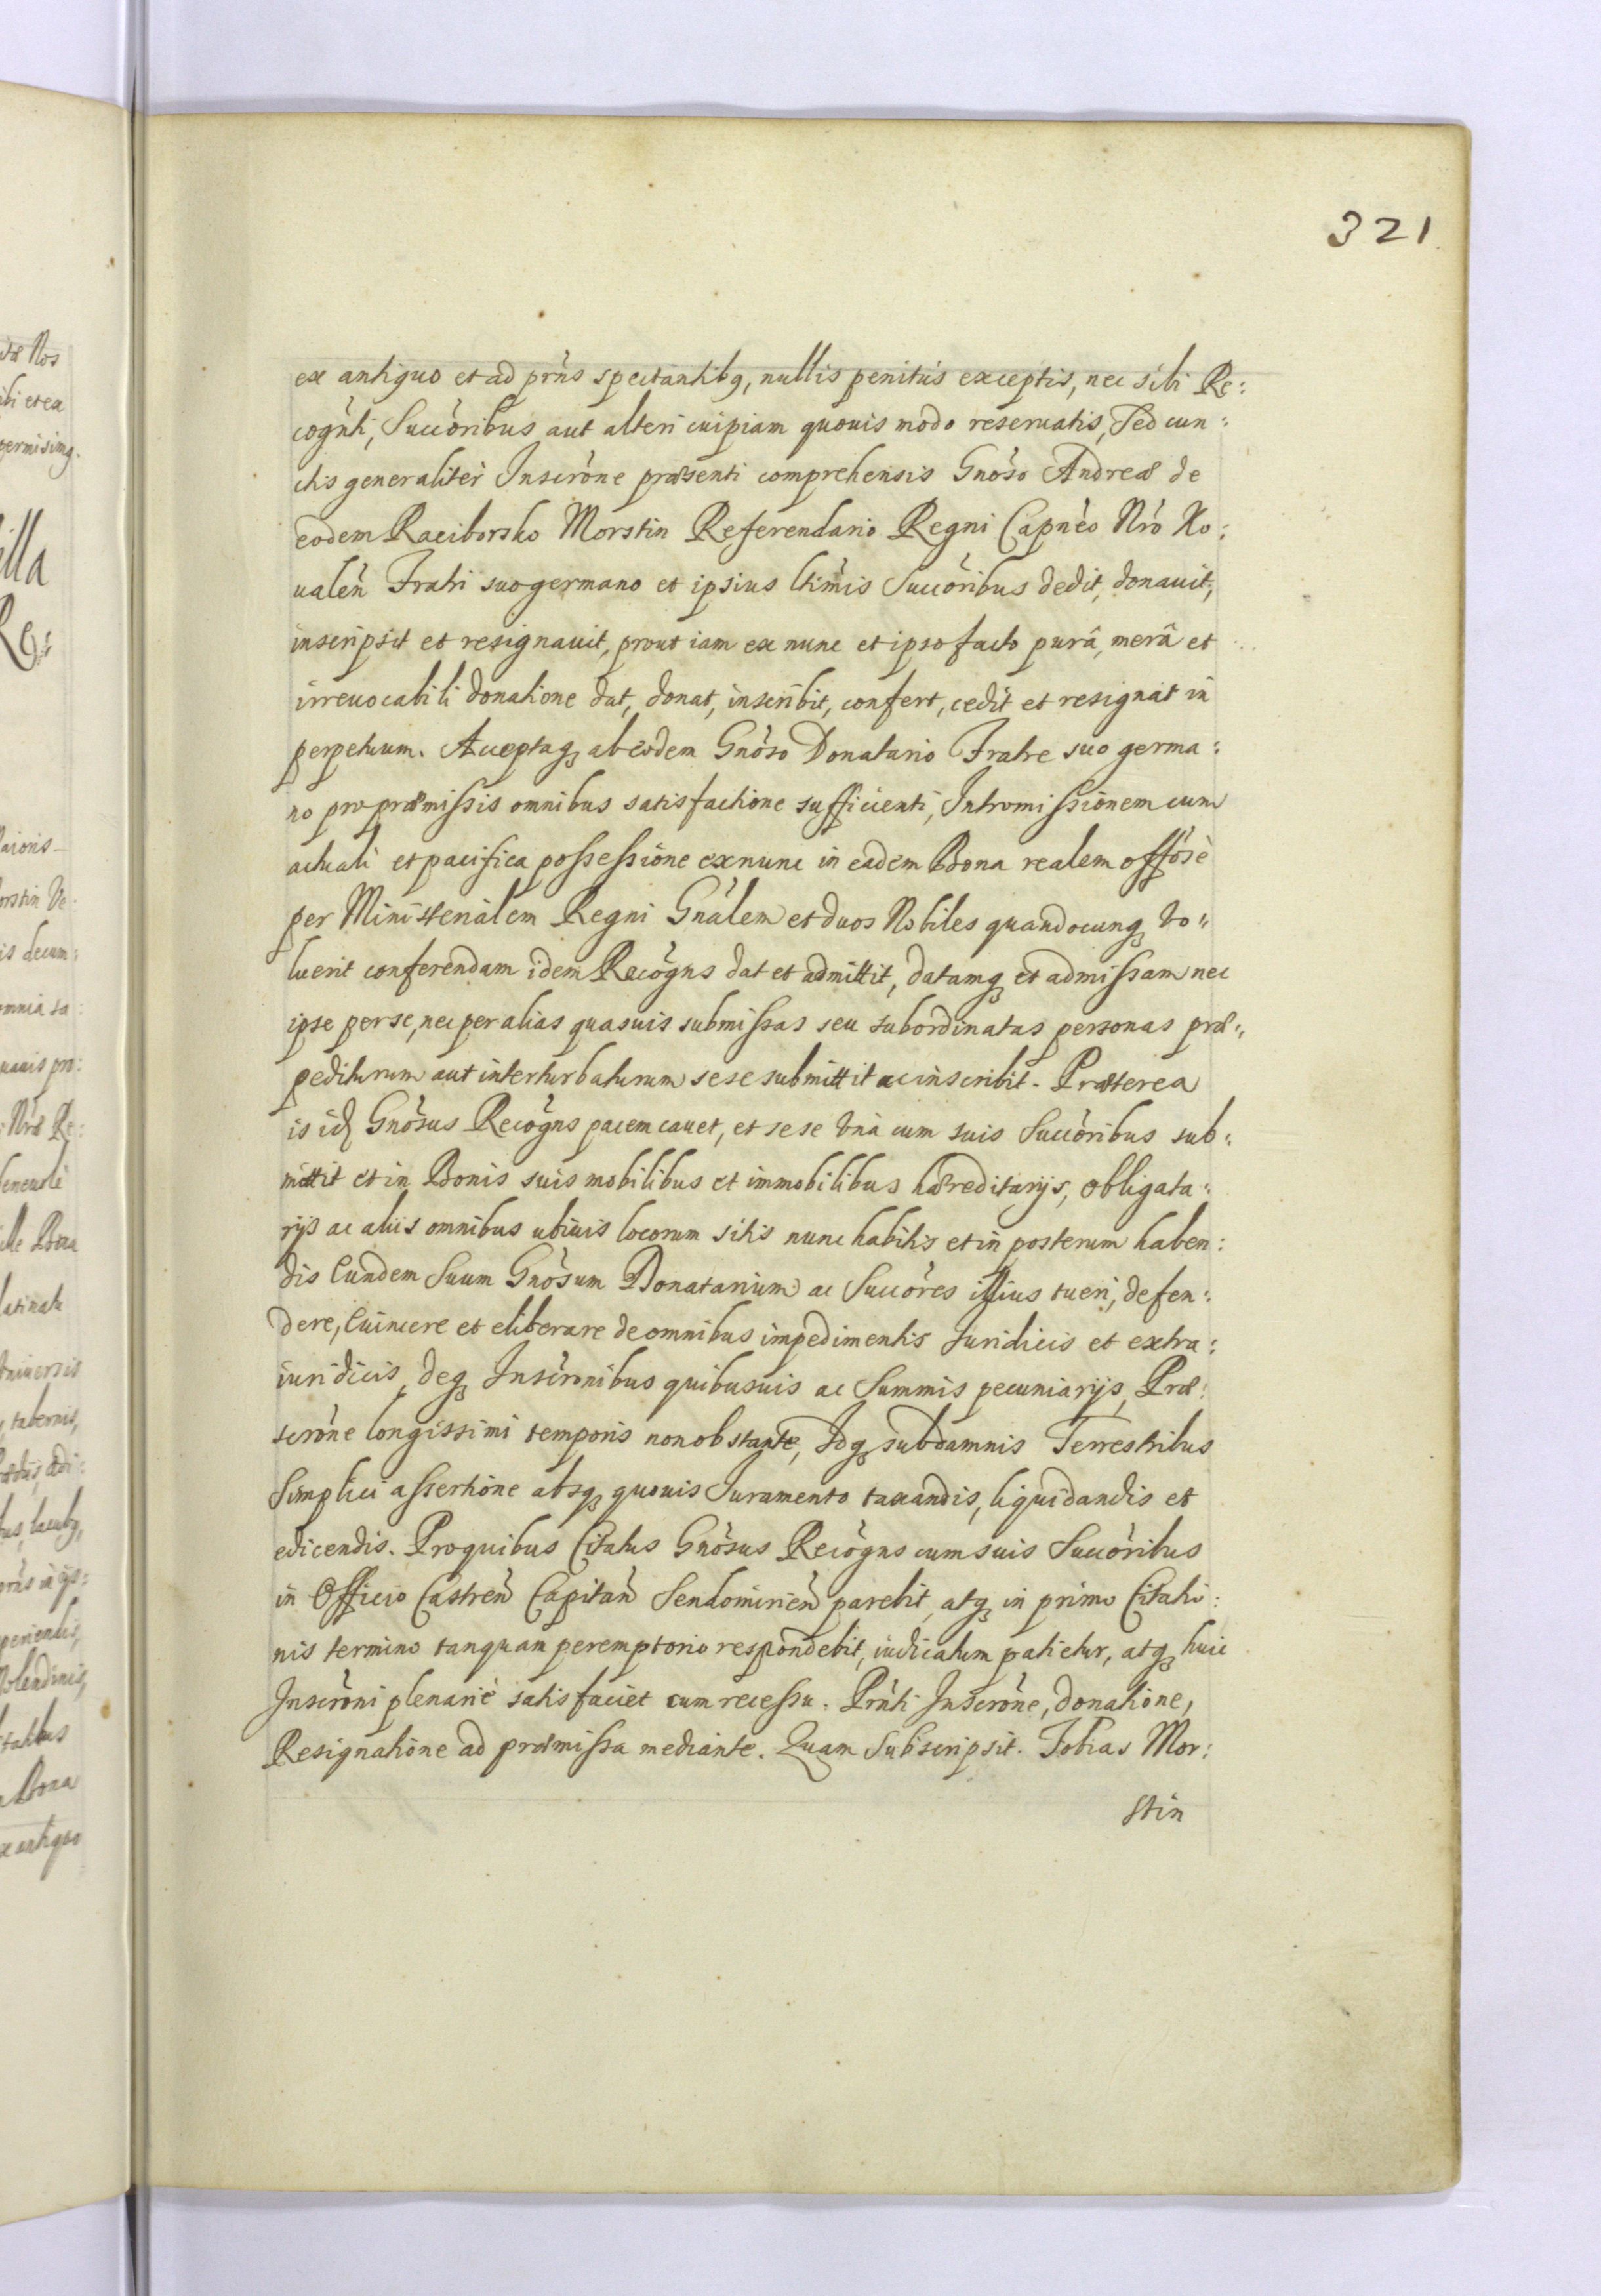 321
ex antiquo et ad prńs spectantibq, nullis penitus exceptis, nec sibi Re:
cogńti, Succòribus aut alteri cuipiam quouis modo reseruatis, Sed cun:
ctis generalitèr Inscròne præsenti comprehensis Gnòso Andreæ de
eodem Raciborsko Morstin Referendario Regni Capnèo Nrò Ko:
ualeǹ Fratri suo germano et ipsius ltimìs Succòribus dedit, donauit,
inscripsit et resignauit, prout iam ex nunc et ipso facto purâ, merâ et
irreuocabili donatione dat, donat, inscribit, confert, cedit et resignat in
perpetuum. Acceptaq; ab eodem Gnòso Donatario Fratre suo germa:
no pro præmissis omnibus satisfactione sufficienti, Intromissionem cum
actuali et pacifica possessione ex nunc in eadem Bona realem offòsè
per Ministerialem Regni Gnàlem et duos Nobiles quandocunq; vo:
luerit conferendam idem Recògns dat et admittit, datamq; et admissam nec
ipse per se, nec per alias quasuis submissas seu subordinatas personas præ:
pediturum aut interturbaturum sese submittit ac inscribit. Præterea
is id; Gnòsus Recògns pacem cauet, et sese vnà cum suis Succòribus sub:
mittit et in Bonis suis mobilibus et immobilibus hæreditarijs, obligata:
rijs ac alijs omnibus ubiuis locorum sitis nunc habitis et in posterum haben:
dis Eundem Suum Gnòsum Donatarium ac Succòres illius tueri, defen:
dere, Euincere et eliberare de omnibus impedimentis Iuridicis et extra:
iuridicis, deq; Inscrònibus quibusuis ac Summis pecuniarijs, Præ:
scròne longissimi temporis non obstante, Idq; sub damnis Terrestribus
Simplici assertione absq; quouis Iuramento taxandis, liquidandis et
edicendis. Pro quibus Citatus Gnòsus Recògns cum suis Succòribus
in Officio Castreǹ Capitaǹ Sendomirieǹ parebit, atq; in primo Citatio:
nis termino tanquam peremptorio respondebit, iudicatum patietur, atq; huic
Inscròni plenariè satisfaciet cum recessu. Prńti Inscròne, donatione,
Resignatione ad præmissa mediante. Quam Subscripsit. Tobias Mor:
stin